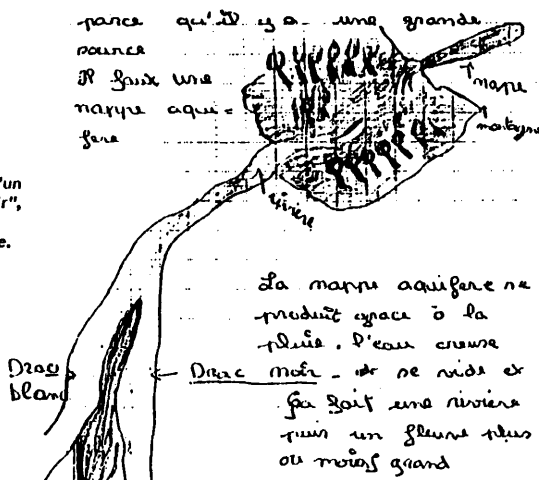 parce qu'il y a une grande
source
Il faux une
nappe aqui=
fere
nappe
montagne
rivière
'un
r",
e.
La nappe aquifere se
produit grace à la
pluie. l'eau creuse
Drac blanc
Drac noir - se vide et
ça fait une rivière
puis un fleuve plus
ou moins grand